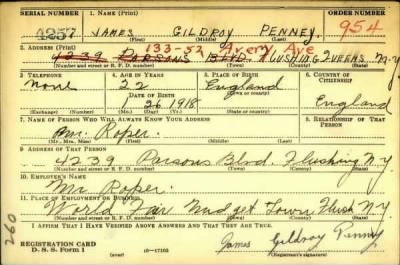 SERIAL NUMBER 1. NAME (Print) ORDER NUMBER
4257 JAMES GILDROY PENNEY 954
(First) (Middle) (Last)
2. ADDRESS (Print) 133-52 Avery Ave
4239 PARSONS BLVD. FLUSHING QUEENS N.Y.
(Number and street or R. F. D. number)
3. TELEPHONE 4. AGE IN YEARS 5. PLACE OF BIRTH 6. COUNTRY OF CITIZENSHIP
None 22 England
DATE OF BIRTH (Town or county)
26 1918 England
(Exchange) (Number) (Mo.) (Day) (Yr.) (State or country)
7. NAME OF PERSON WHO WILL ALWAYS KNOW YOUR ADDRESS 8. RELATIONSHIP OF THAT PERSON
Mr. Roper.
(Mr., Mrs., Miss) (First) (Middle) (Last)
9. ADDRESS OF THAT PERSON
4239 Parsons Blvd. Flushing N.Y.
(Number and street or R. F. D. number) (Town) (County) (State)
10. EMPLOYER'S NAME
Mr Roper.
11. PLACE OF EMPLOYMENT OR BUSINESS
World Fair Midget Town Flush N.Y.
(Number and street or R. F. D. number) (Town) (County) (State)
I AFFIRM THAT I HAVE VERIFIED ABOVE ANSWERS AND THAT THEY ARE TRUE.
260
REGISTRATION CARD
D. S. S. Form 1 (over) 16—17105 James Gildroy Penney